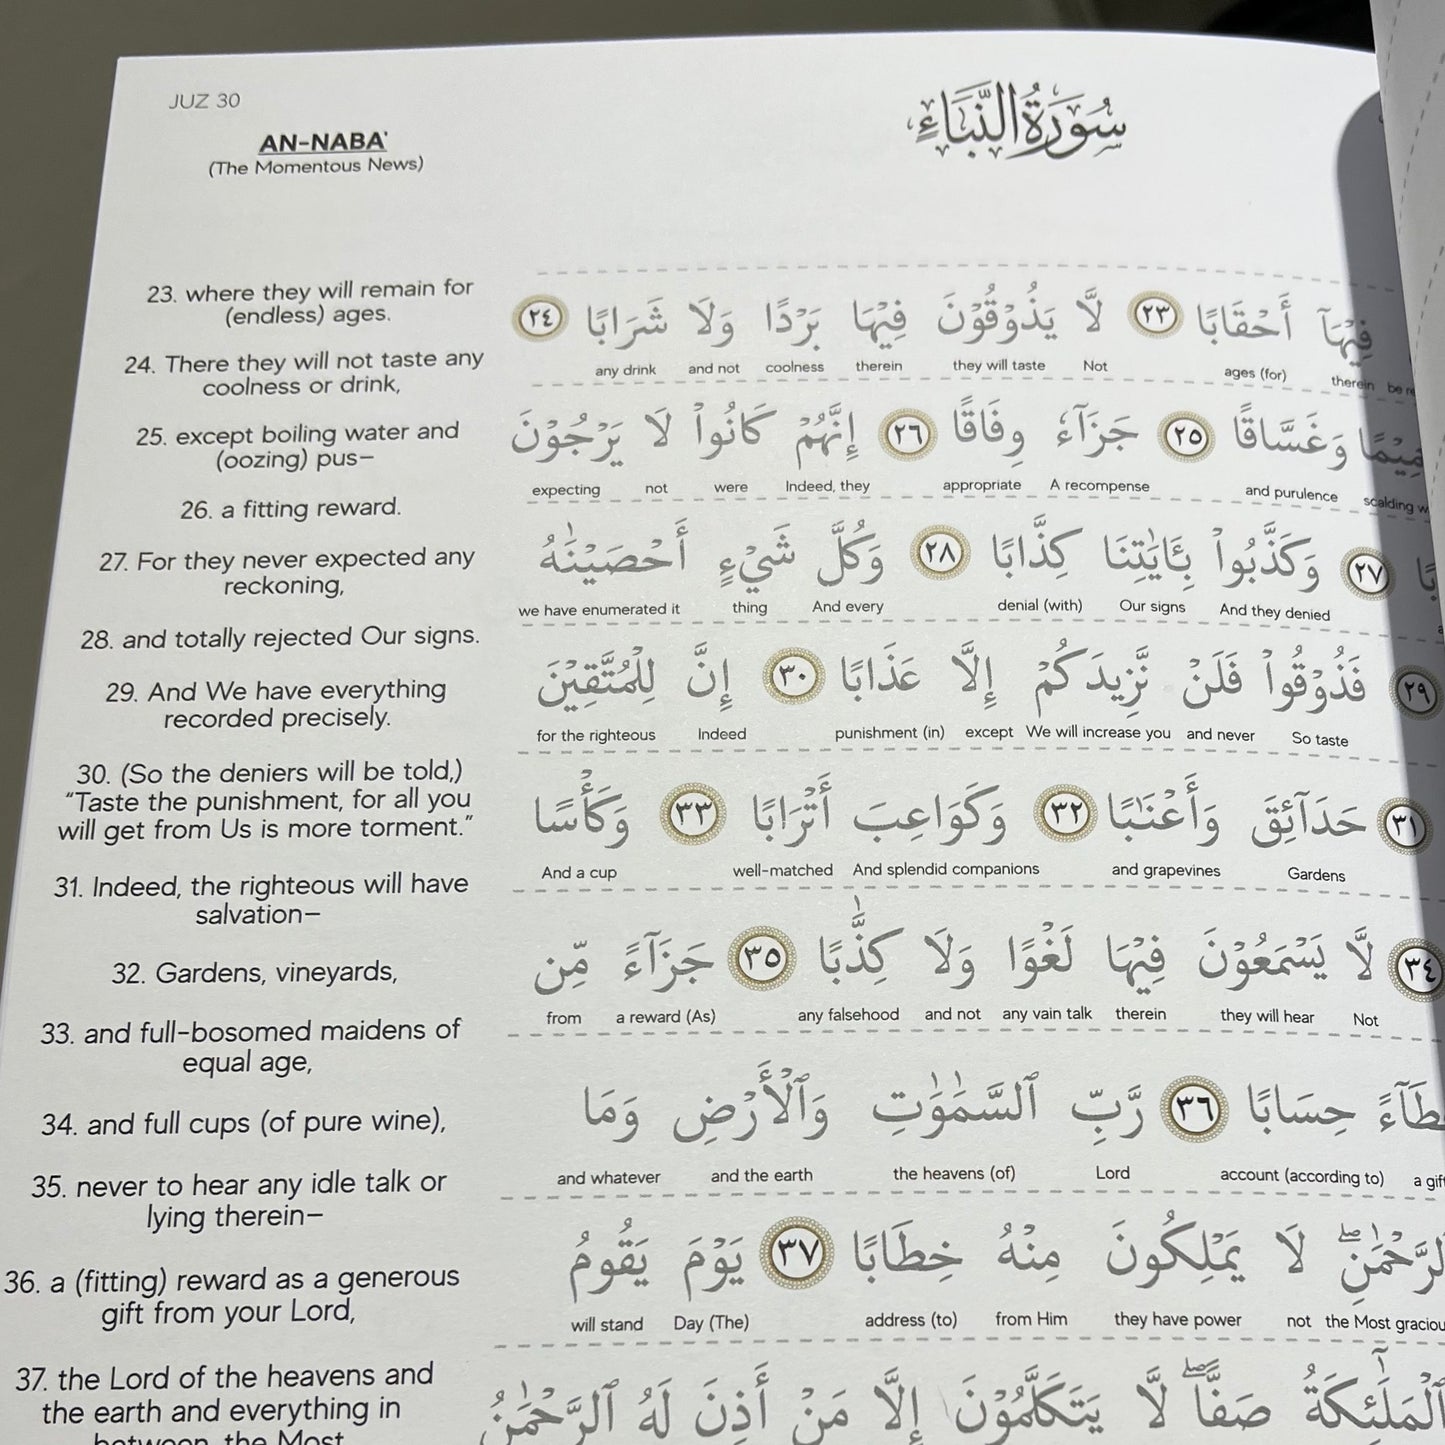 JUZ 30
AN-NABA'
(The Momentous News)
سُورَةُ النَّبَاءِ
23. where they will remain for
(endless) ages.
24. There they will not taste any
coolness or drink,
25. except boiling water and
(oozing) pus–
26. a fitting reward.
27. For they never expected any
reckoning,
28. and totally rejected Our signs.
29. And We have everything
recorded precisely.
30. (So the deniers will be told,)
“Taste the punishment, for all you
will get from Us is more torment.”
31. Indeed, the righteous will have
salvation–
32. Gardens, vineyards,
33. and full-bosomed maidens of
equal age,
34. and full cups (of pure wine),
35. never to hear any idle talk or
lying therein–
36. a (fitting) reward as a generous
gift from your Lord,
37. the Lord of the heavens and
the earth and everything in
between, the Most
فِيْهَآ أَحْقَابًا ٢٣ لَّا يَذُوْقُوْنَ فِيْهَا بَرْدًا وَلَا شَرَابًا ٢٤
any drink and not coolness therein they will taste Not ages (for) therein
وَغَسَّاقًا ٢٥ جَزَآءً وِفَاقًا ٢٦ إِنَّهُمْ كَانُوا۟ لَا يَرْجُوْنَ
expecting not were Indeed, they appropriate A recompense and purulence scalding
٢٧ وَكَذَّبُوا۟ بِـَٔايَٰتِنَا كِذَّابًا ٢٨ وَكُلَّ شَيْءٍ أَحْصَيْنَٰهُ
we have enumerated it thing And every denial (with) Our signs And they denied
٢٩ فَذُوْقُوا۟ فَلَنْ نَّزِيدَكُمْ إِلَّا عَذَابًا ٣٠ إِنَّ لِلْمُتَّقِيْنَ
for the righteous Indeed punishment (in) except We will increase you and never So taste
٣١ حَدَآئِقَ وَأَعْنَٰبًا ٣٢ وَكَوَاعِبَ أَتْرَابًا ٣٣ وَكَأْسًا
And a cup well-matched And splendid companions and grapevines Gardens
٣٤ لَّا يَسْمَعُوْنَ فِيْهَا لَغْوًا وَلَا كِذَّٰبًا ٣٥ جَزَآءً مِّن
from a reward (As) any falsehood and not any vain talk therein they will hear Not
حِسَابًا ٣٦ رَّبِّ ٱلسَّمَٰوَٰتِ وَٱلْأَرْضِ وَمَا
and whatever and the earth the heavens (of) Lord account (according to) a
لَا يَمْلِكُونَ مِنْهُ خِطَابًا ٣٧ يَوْمَ يَقُومُ
will stand Day (The) address (to) from Him they have power not the Most
صَفًّا ۖ لَّا يَتَكَلَّمُوْنَ إِلَّا مَنْ أَذِنَ لَهُ ٱلرَّحْمَٰنُ